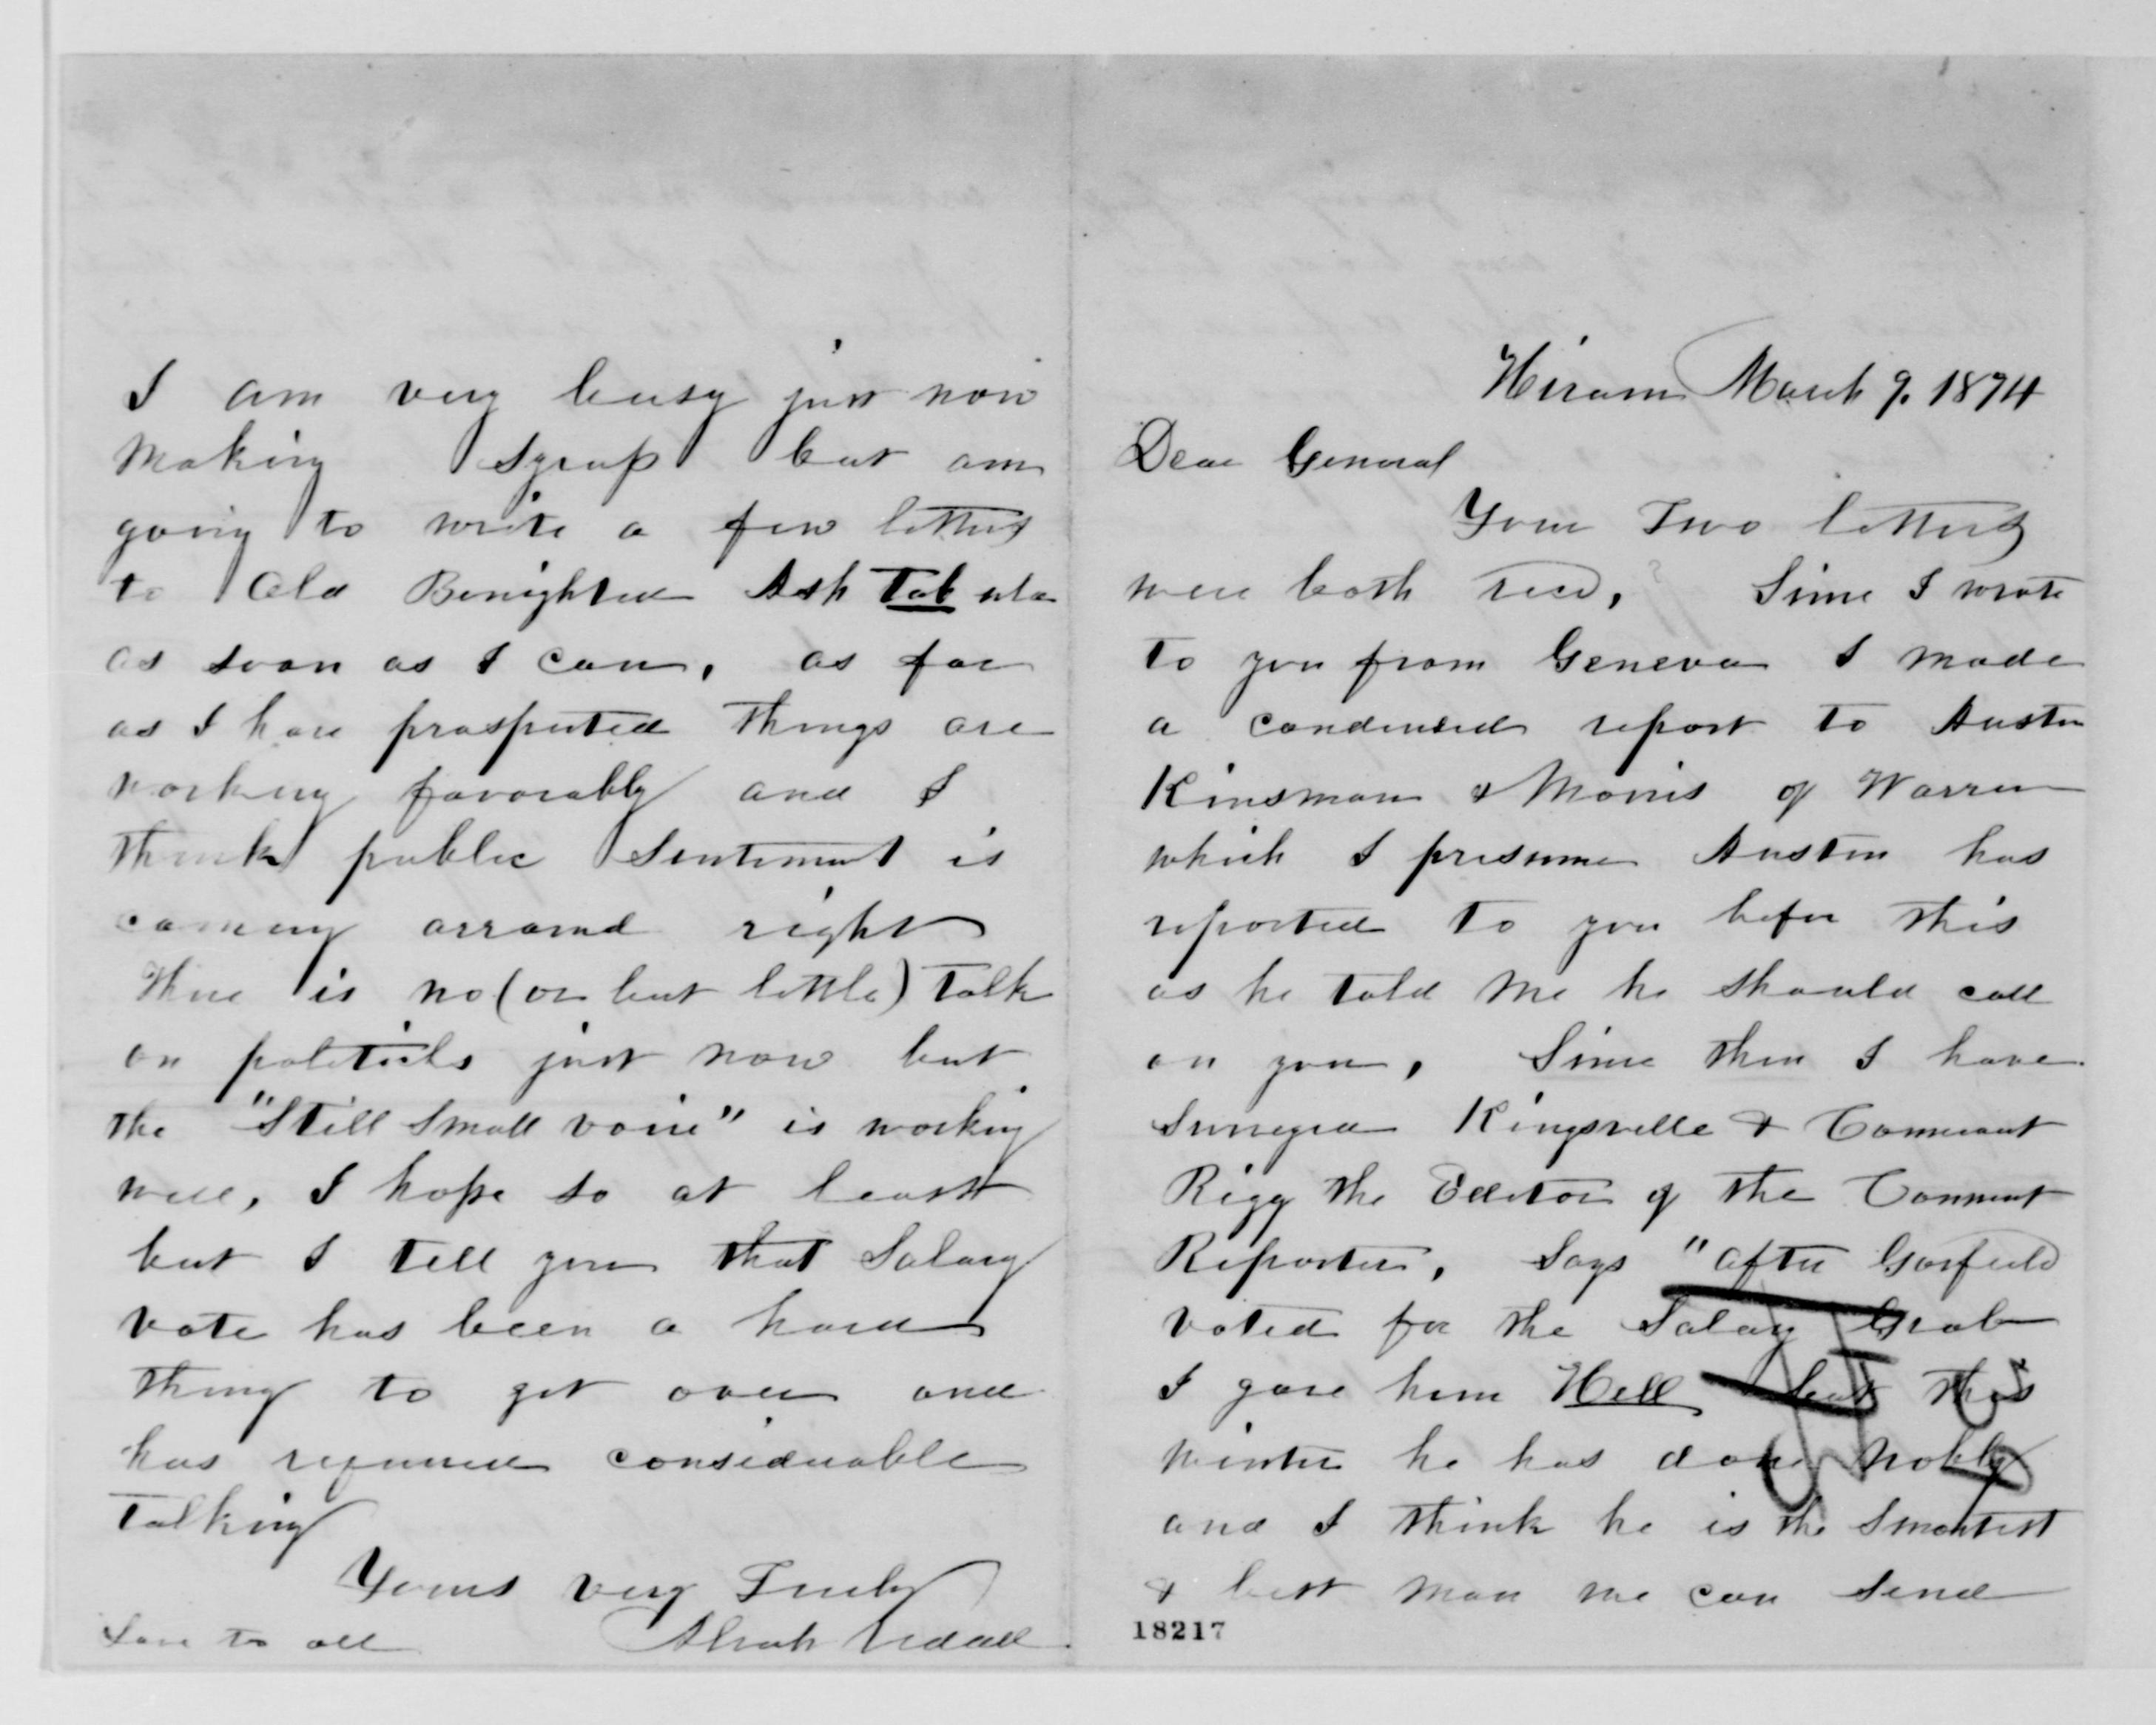 Hiram March 9. 1874
Dear General
Your Two letters
were both recd, Since I wrote
to you from Geneva I made
a condensed report to Austin
Kinsman & Morris of Warren
which I presume Austin has
reported to you before this
as he told me he should call
on you, Since then I have
Surveyed Kingsville & Conneaut
Rigg the Editor of the Conneaut
Reporter, Says "after Garfield
voted for the Salary Grab
I gave him Hell but this
winter he has done nobly
and I think he is the Smartest
& best man we can Send
18217
I am very busy just now
making Syrup but am
going to write a few letters
to Old Benighted Ash Tab ula
as soon as I can, as far
as I have prospected things are
working favorably and I
think public Sentiment is
coming arround right
There is no (or but little) Talk
on politicks just now but
the "Still Small voice" is working
well, I hope so at least
but I tell you that Salary
vote has been a hard
thing to get over and
has required considerable
Talking
Yours very Truly
Alvah Udall
Love to all